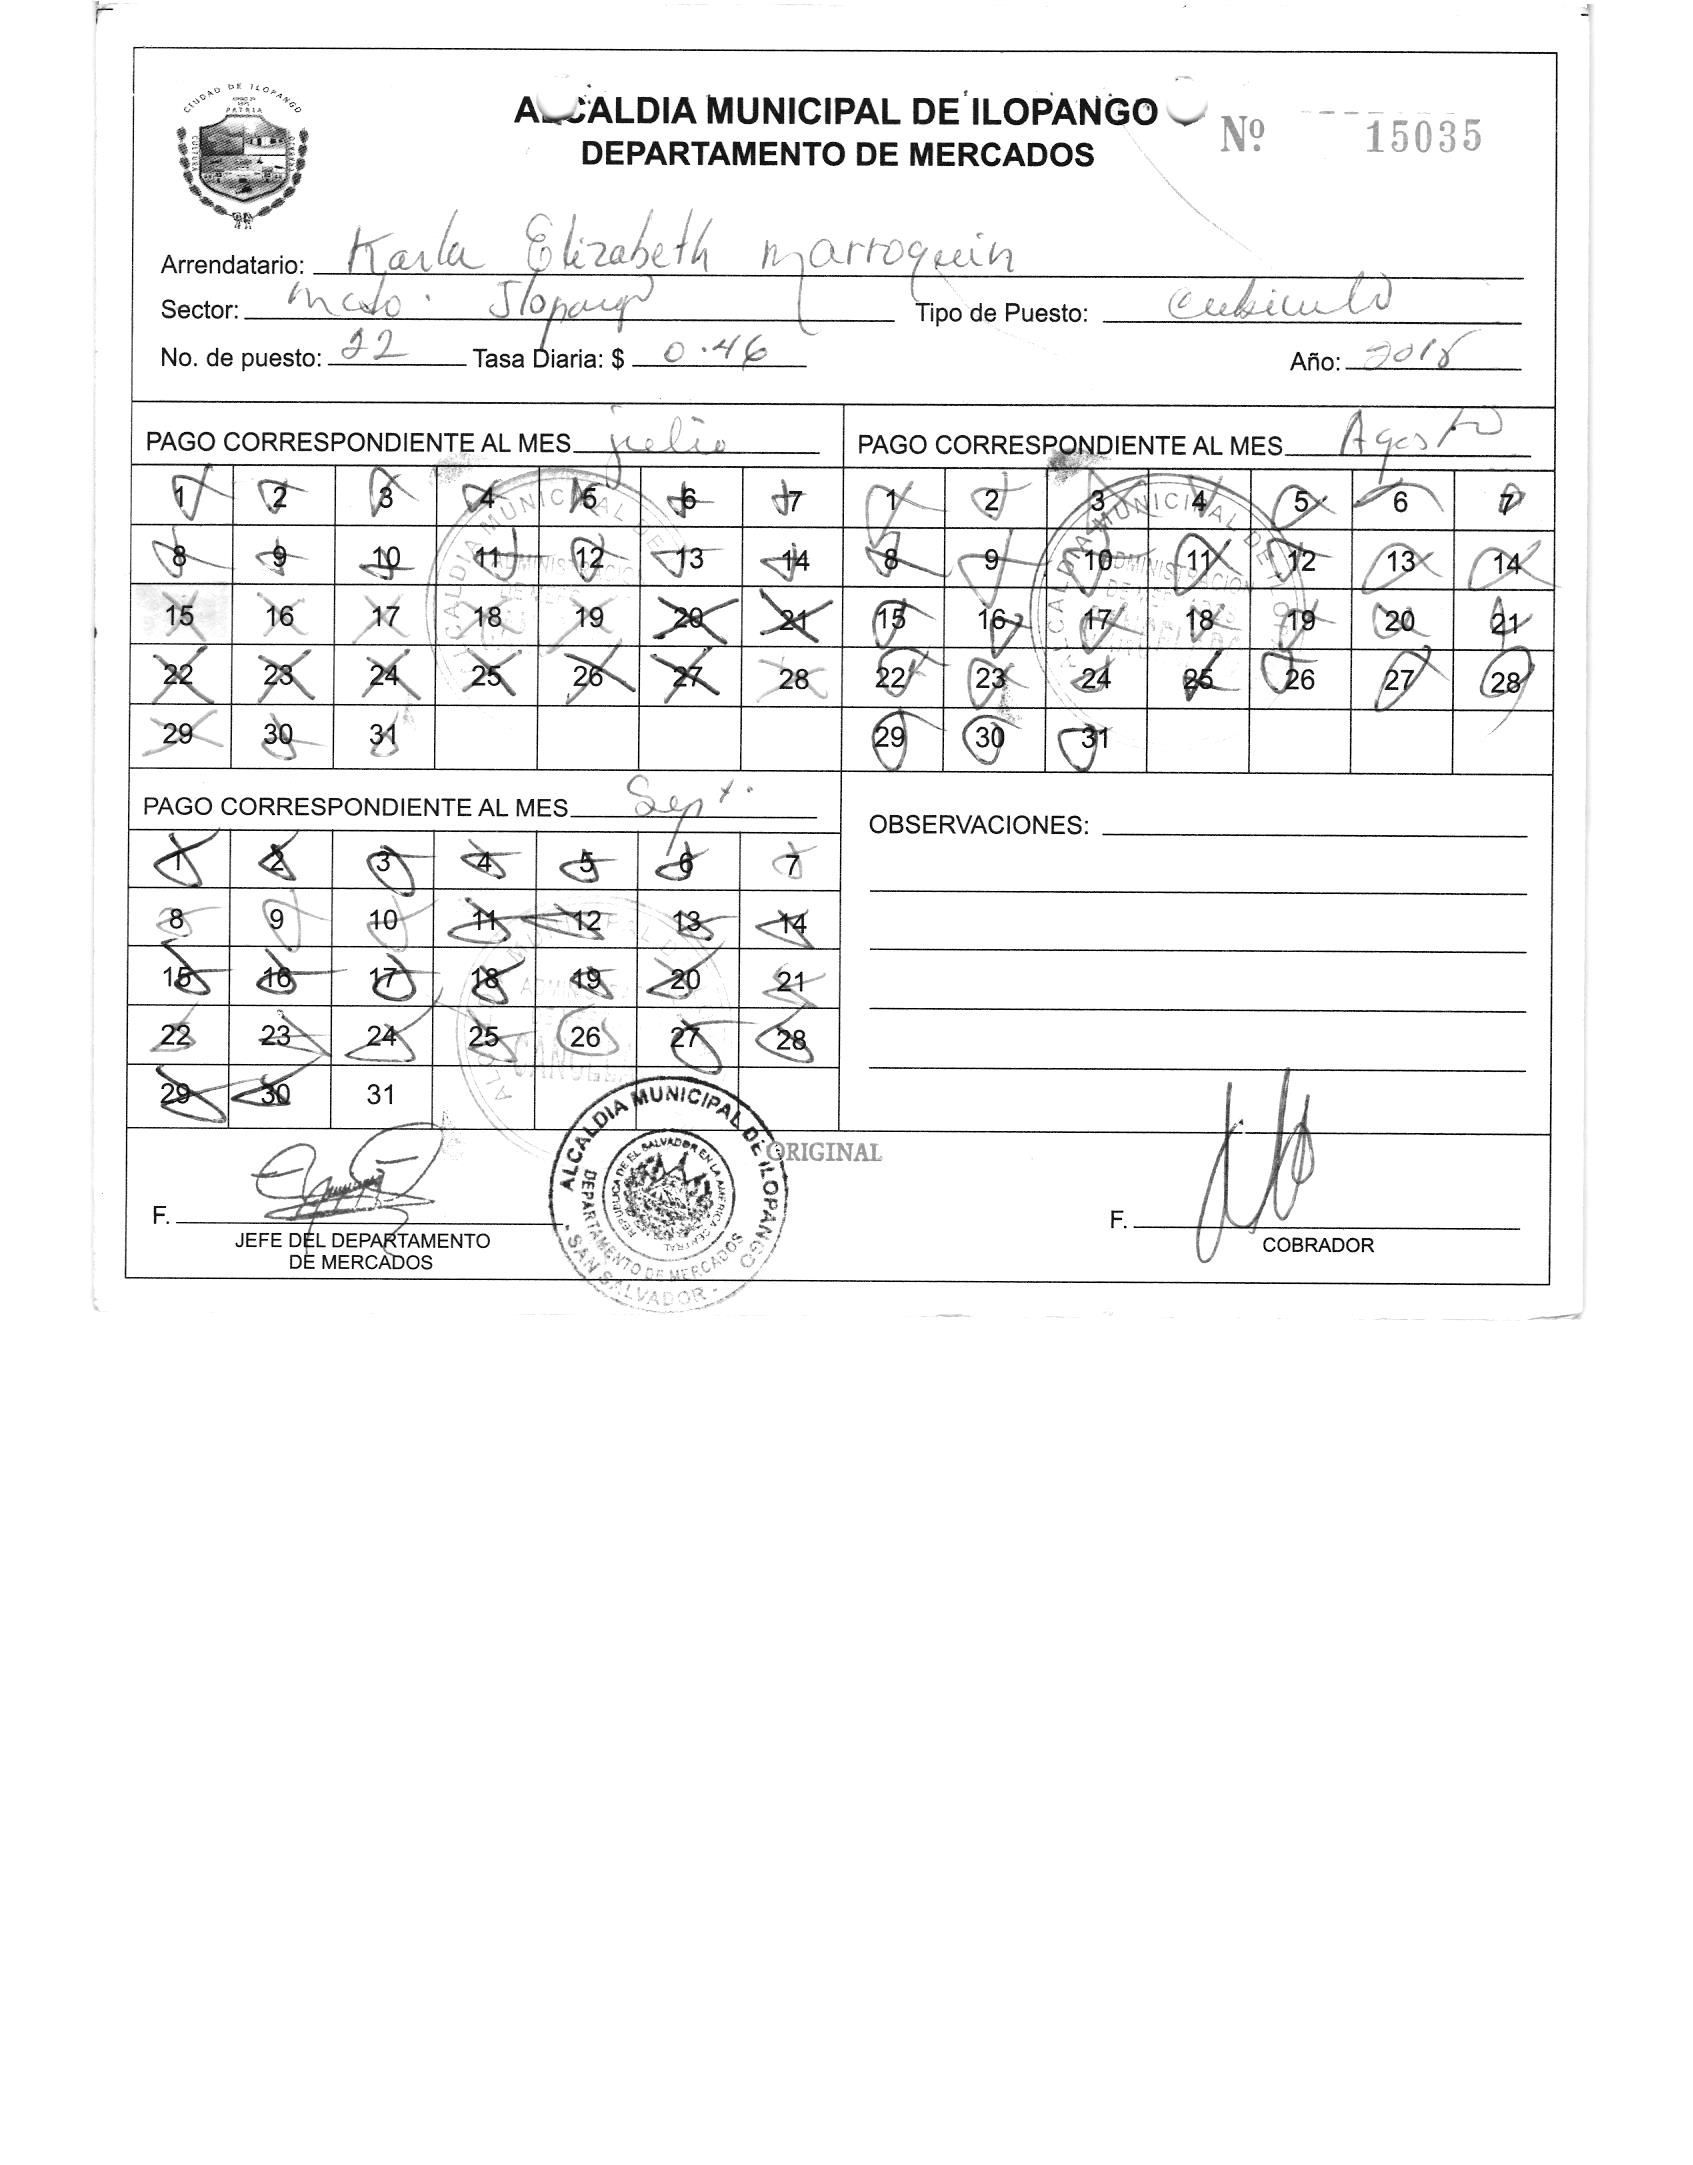 CIUDAD DE ILOPANGO
PATRIA
ALCALDIA MUNICIPAL DE ILOPANGO
DEPARTAMENTO DE MERCADOS
Nº 15035
Arrendatario: Karla Elizabeth Marroquin
Sector: Mcdo. Ilopango Tipo de Puesto: Cubiculo
No. de puesto: 22 Tasa Diaria: $ 0.46 Año: 2018
PAGO CORRESPONDIENTE AL MES julio
1 2 3 4 5 6 7
8 9 10 11 12 13 14
15 16 17 18 19 20 21
22 23 24 25 26 27 28
29 30 31
PAGO CORRESPONDIENTE AL MES Agosto
1 2 3 4 5 6 7
8 9 10 11 12 13 14
15 16 17 18 19 20 21
22 23 24 25 26 27 28
29 30 31
PAGO CORRESPONDIENTE AL MES Sept.
1 2 3 4 5 6 7
8 9 10 11 12 13 14
15 16 17 18 19 20 21
22 23 24 25 26 27 28
29 30 31
OBSERVACIONES:
ORIGINAL
F.
JEFE DEL DEPARTAMENTO
DE MERCADOS
ALCALDIA MUNICIPAL DE ILOPANGO
DEPARTAMENTO DE MERCADOS
- SAN SALVADOR -
REPUBLICA DE EL SALVADOR EN LA AMERICA CENTRAL
F.
COBRADOR